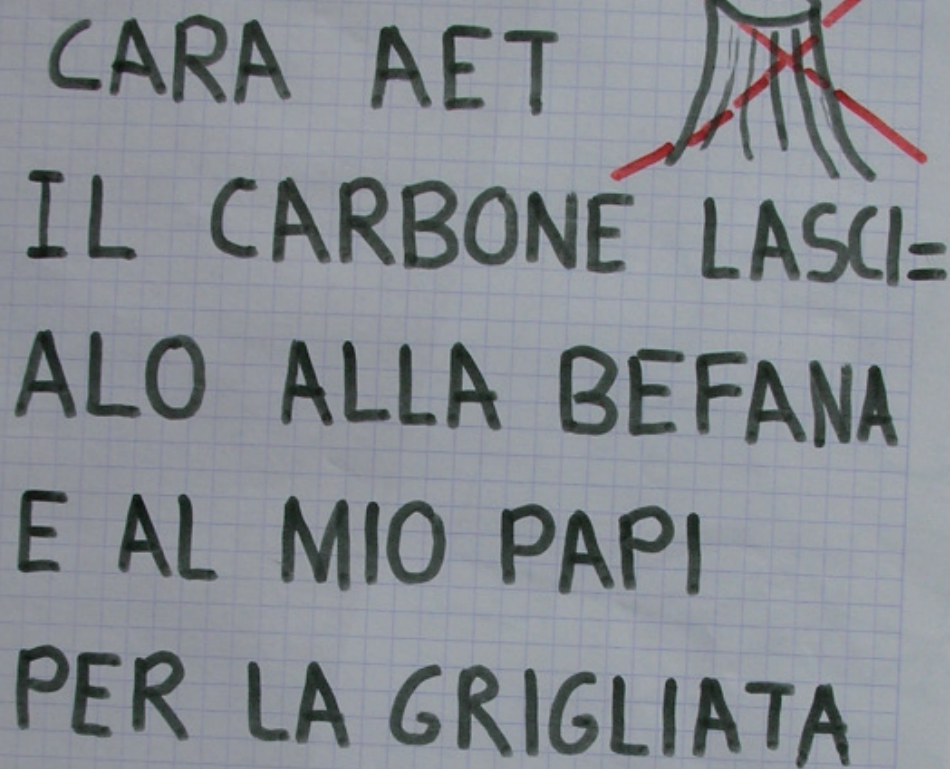 CARA AET
IL CARBONE LASCI=
ALO ALLA BEFANA
E AL MIO PAPI
PER LA GRIGLIATA